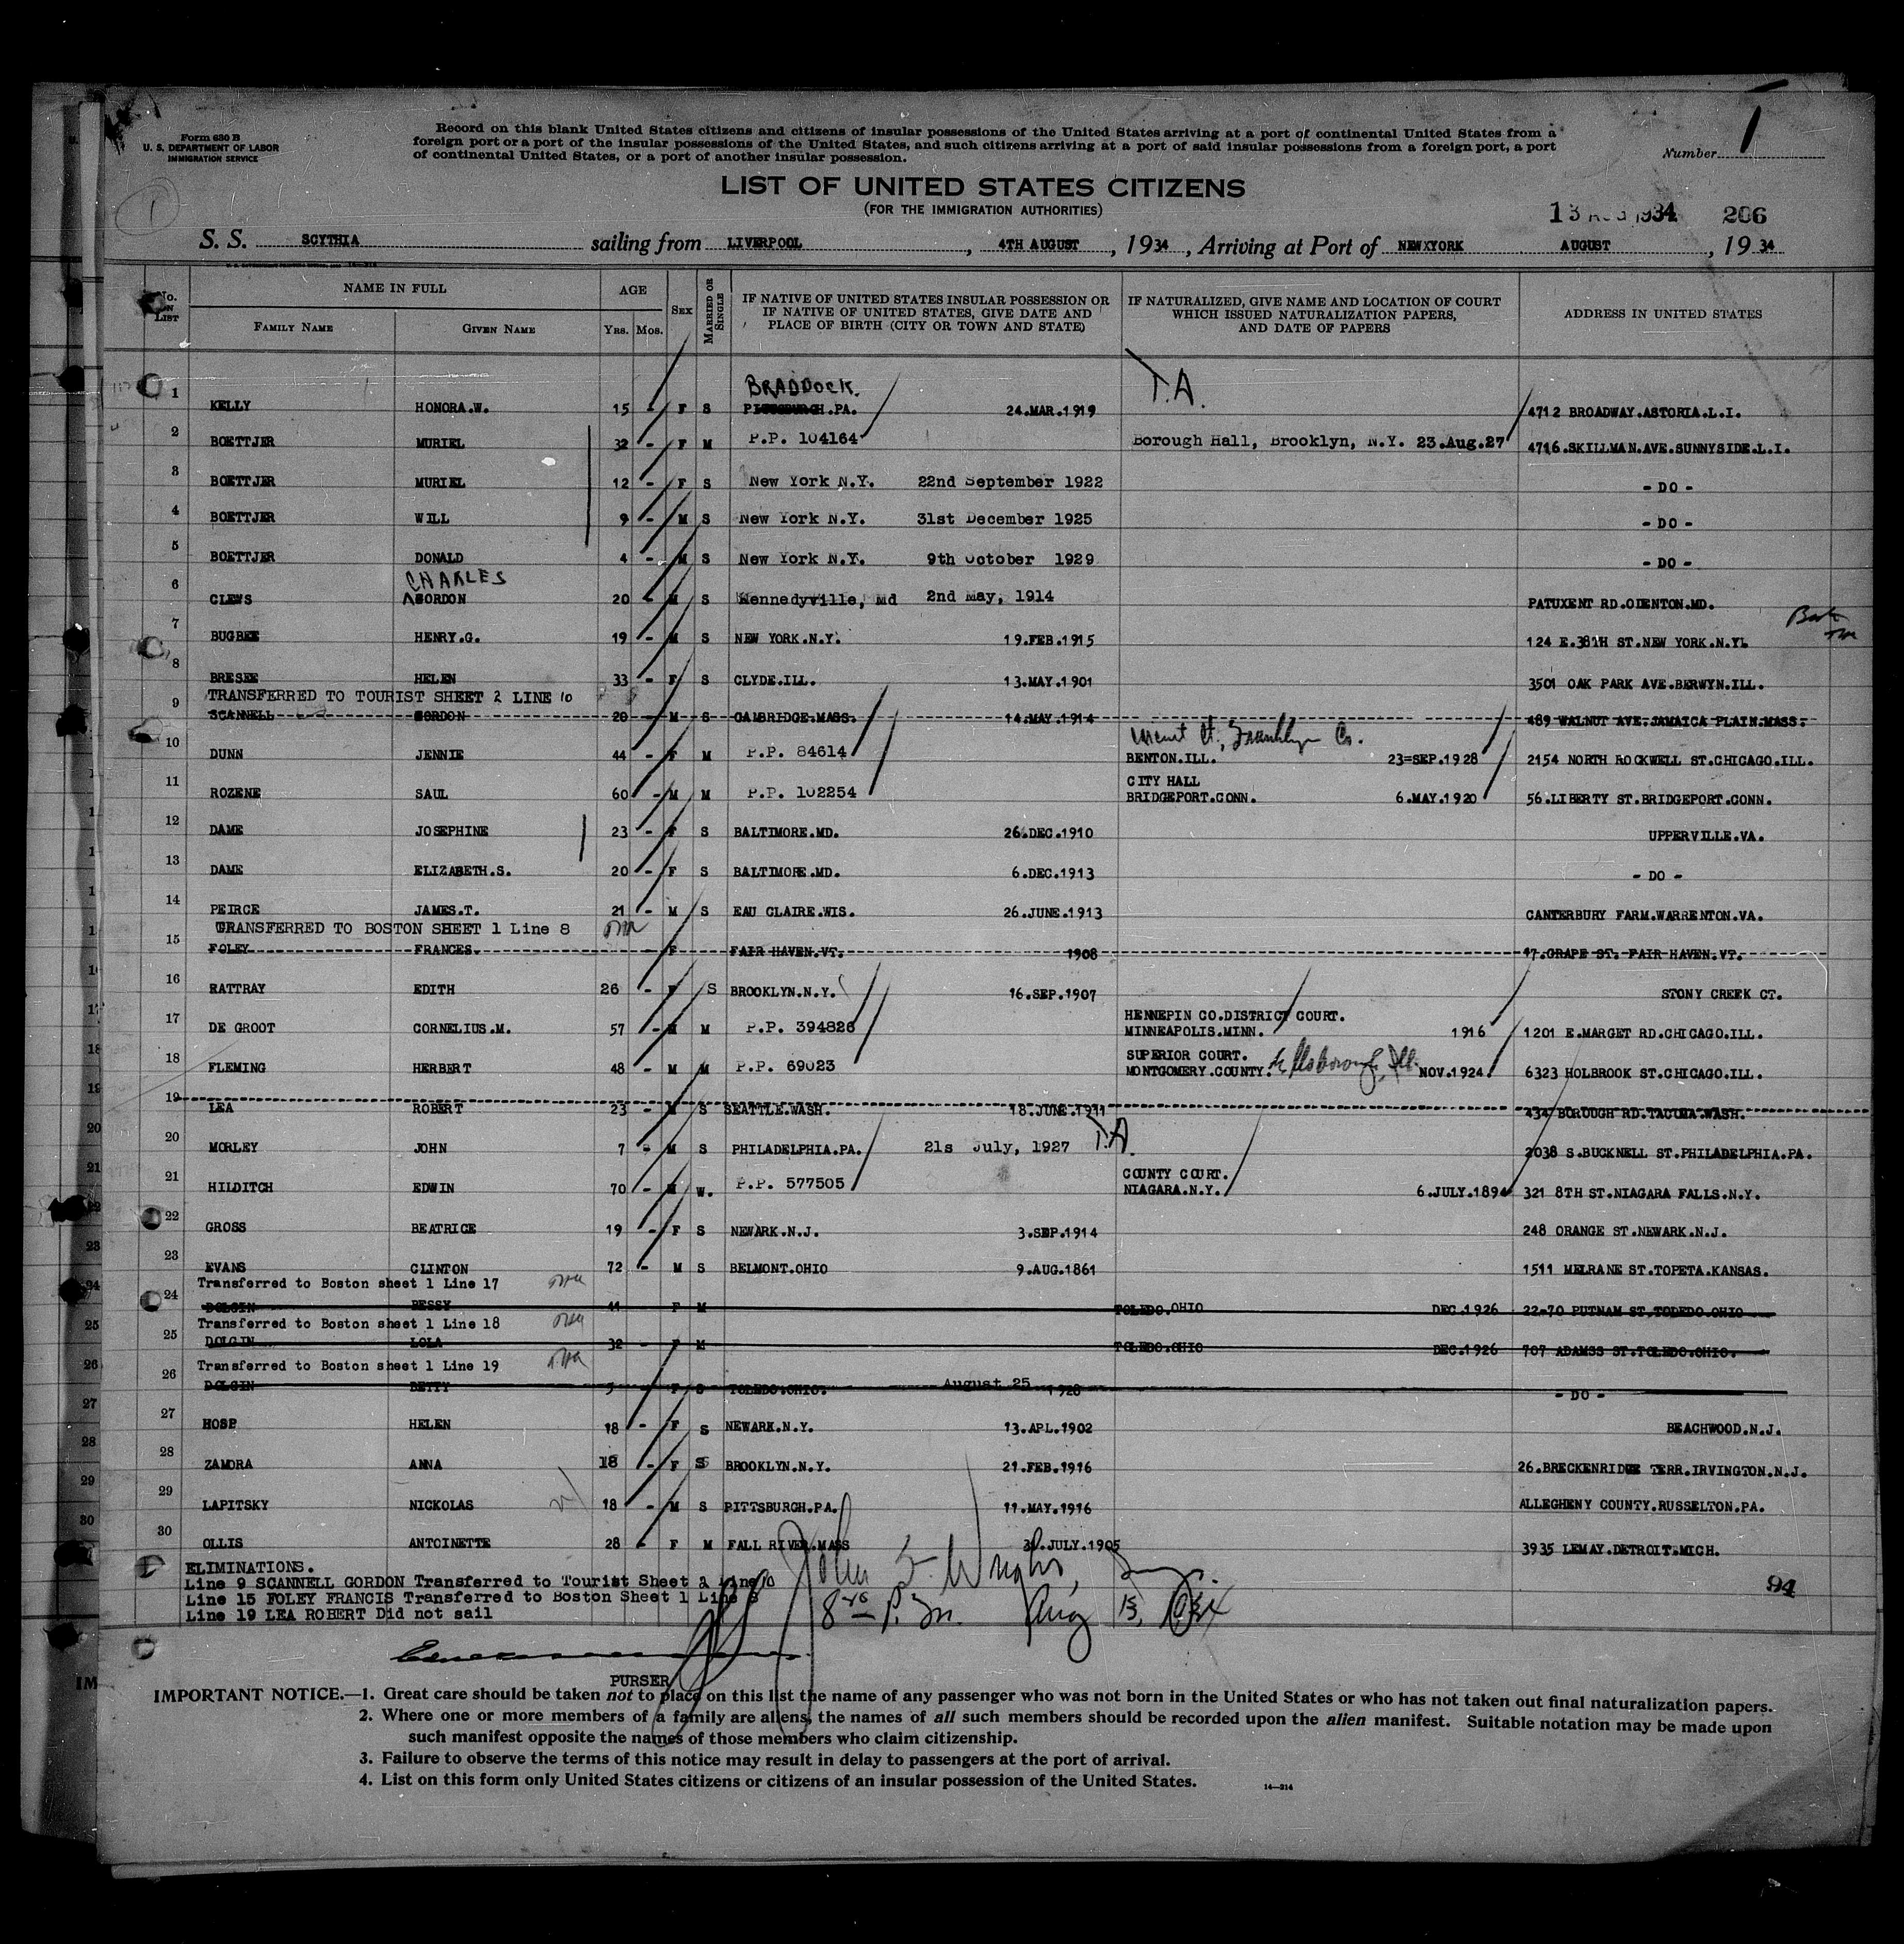 Form 630 B
U. S. DEPARTMENT OF LABOR
IMMIGRATION SERVICE
Record on this blank United States citizens and citizens of insular possessions of the United States arriving at a port of continental United States from a
foreign port or a port of the insular possessions of the United States, and such citizens arriving at a port of said insular possessions from a foreign port, a port
of continental United States, or a port of another insular possession.
Number 1
1
LIST OF UNITED STATES CITIZENS
(FOR THE IMMIGRATION AUTHORITIES)
13 AUG 1934 206
S. S. SCYTHIA sailing from LIVERPOOL, 4TH AUGUST, 1934, Arriving at Port of NEWXYORK AUGUST, 1934
No. ON LIST
NAME IN FULL
FAMILY NAME
GIVEN NAME
AGE
YRS. MOS.
SEX
MARRIED OR SINGLE
IF NATIVE OF UNITED STATES INSULAR POSSESSION OR
IF NATIVE OF UNITED STATES, GIVE DATE AND
PLACE OF BIRTH (CITY OR TOWN AND STATE)
IF NATURALIZED, GIVE NAME AND LOCATION OF COURT
WHICH ISSUED NATURALIZATION PAPERS,
AND DATE OF PAPERS
ADDRESS IN UNITED STATES
BRADDOCK. T.A.
1 KELLY HONORA.W. 15 - F S PITTSBURGH.PA. 24.MAR.1919 4712 BROADWAY.ASTORIA.L.I.
2 BOETTJER MURIEL 32 - F M P.P. 104164 Borough Hall, Brooklyn, N.Y. 23.Aug.27 4716.SKILLMAN.AVE.SUNNYSIDE.L.I.
3 BOETTJER MURIEL 12 - F S New York N.Y. 22nd September 1922 - DO -
4 BOETTJER WILL 9 - M S New York N.Y. 31st December 1925 - DO -
5 BOETTJER DONALD 4 - M S New York N.Y. 9th October 1929 - DO -
CHARLES
6 CLEWS GORDON 20 - M S Kennedyville, Md 2nd May, 1914 PATUXENT RD.ODENTON.MD.
7 BUGBEE HENRY.G. 19 - M S NEW YORK.N.Y. 19.FEB.1915 124 E.38TH ST.NEW YORK.N.Y.
8 BRESEE HELEN 33 - F S CLYDE.ILL. 13.MAY.1901 3501 OAK PARK AVE.BERWYN.ILL.
TRANSFERRED TO TOURIST SHEET 2 LINE 10
9 SCANNELL GORDON 20 - M S CAMBRIDGE.MASS. 14.MAY.1914 489 WALNUT AVE.JAMAICA PLAIN.MASS.
Franklyn Co.
10 DUNN JENNIE 44 - F M P.P. 84614 BENTON.ILL. 23=SEP.1928 2154 NORTH ROCKWELL ST.CHICAGO.ILL.
CITY HALL
11 ROZENE SAUL 60 - M M P.P. 102254 BRIDGEPORT.CONN. 6.MAY.1920 56.LIBERTY ST.BRIDGEPORT.CONN.
12 DAME JOSEPHINE 23 - F S BALTIMORE.MD. 26.DEC.1910 UPPERVILLE.VA.
13 DAME ELIZABETH.S. 20 - F S BALTIMORE.MD. 6.DEC.1913 - DO -
14 PEIRCE JAMES.T. 21 - M S EAU CLAIRE.WIS. 26.JUNE.1913 CANTERBURY FARM.WARRENTON.VA.
TRANSFERRED TO BOSTON SHEET 1 Line 8
15 FOLEY FRANCES. - F FAIR HAVEN.VT. 1908 17.GRAPE ST. FAIR HAVEN.VT.
16 RATTRAY EDITH 26 - F S BROOKLYN.N.Y. 16.SEP.1907 STONY CREEK CT.
HENNEPIN CO.DISTRICT COURT.
17 DE GROOT CORNELIUS.M. 57 - M M P.P. 394826 MINNEAPOLIS.MINN. 1916 1201 E.MARGET RD.CHICAGO.ILL.
SUPERIOR COURT.
18 FLEMING HERBERT 48 - M M P.P. 69023 MONTGOMERY.COUNTY. Hillsborough, Ill. NOV.1924. 6323 HOLBROOK ST.CHICAGO.ILL.
19 LEA ROBERT 23 - M S SEATTLE.WASH. 18.JUNE.1911 434 BOROUGH RD.TACOMA.WASH.
20 MORLEY JOHN 7 - M S PHILADELPHIA.PA. 21s July, 1927 T.A. 2038 S.BUCKNELL ST.PHILADELPHIA.PA.
COUNTY COURT.
21 HILDITCH EDWIN 70 - M W. P.P. 577505 NIAGARA.N.Y. 6.JULY.1894 321 8TH ST.NIAGARA FALLS.N.Y.
22 GROSS BEATRICE 19 - F S NEWARK.N.J. 3.SEP.1914 248 ORANGE ST.NEWARK.N.J.
23 EVANS CLINTON 72 - M S BELMONT.OHIO 9.AUG.1861 1511 MELRANE ST.TOPETA.KANSAS.
Transferred to Boston sheet 1 Line 17
24 DOLGIN BESSY 41 F M TOLEDO.OHIO DEC.1926 22-70 PUTNAM ST.TODEDO.OHIO
Transferred to Boston sheet 1 Line 18
25 DOLGIN LOLA 32 - F M TOLEDO.OHIO DEC.1926 707 ADAMSS ST.TOLEDO.OHIO.
Transferred to Boston sheet 1 Line 19
26 DOLGIN BETTY 5 - F S TOLEDO.OHIO. August 25 1928 - DO -
27 HOSP HELEN 18 - F S NEWARK.N.Y. 13.APL.1902 BEACHWOOD.N.J.
28 ZAMORA ANNA 18 - F S BROOKLYN.N.Y. 21.FEB.1916 26.BRECKENRIDGE TERR.IRVINGTON.N.J.
29 LAPITSKY NICKOLAS 18 - M S PITTSBURGH.PA. 11.MAY.1916 ALLEGHENY COUNTY.RUSSELTON.PA.
30 OLLIS ANTOINETTE 28 - F M FALL RIVER.MASS JULY.1905 3935 LEMAY.DETROIT.MICH.
ELIMINATIONS.
Line 9 SCANNELL GORDON Transferred to Tourist Sheet 2 Line 10
Line 15 FOLEY FRANCIS Transferred to Boston Sheet 1 Line 8
Line 19 LEA ROBERT Did not sail
94
PURSER
IMPORTANT NOTICE.—1. Great care should be taken not to place on this list the name of any passenger who was not born in the United States or who has not taken out final naturalization papers.
2. Where one or more members of a family are aliens, the names of all such members should be recorded upon the alien manifest. Suitable notation may be made upon
such manifest opposite the names of those members who claim citizenship.
3. Failure to observe the terms of this notice may result in delay to passengers at the port of arrival.
4. List on this form only United States citizens or citizens of an insular possession of the United States.
14—314